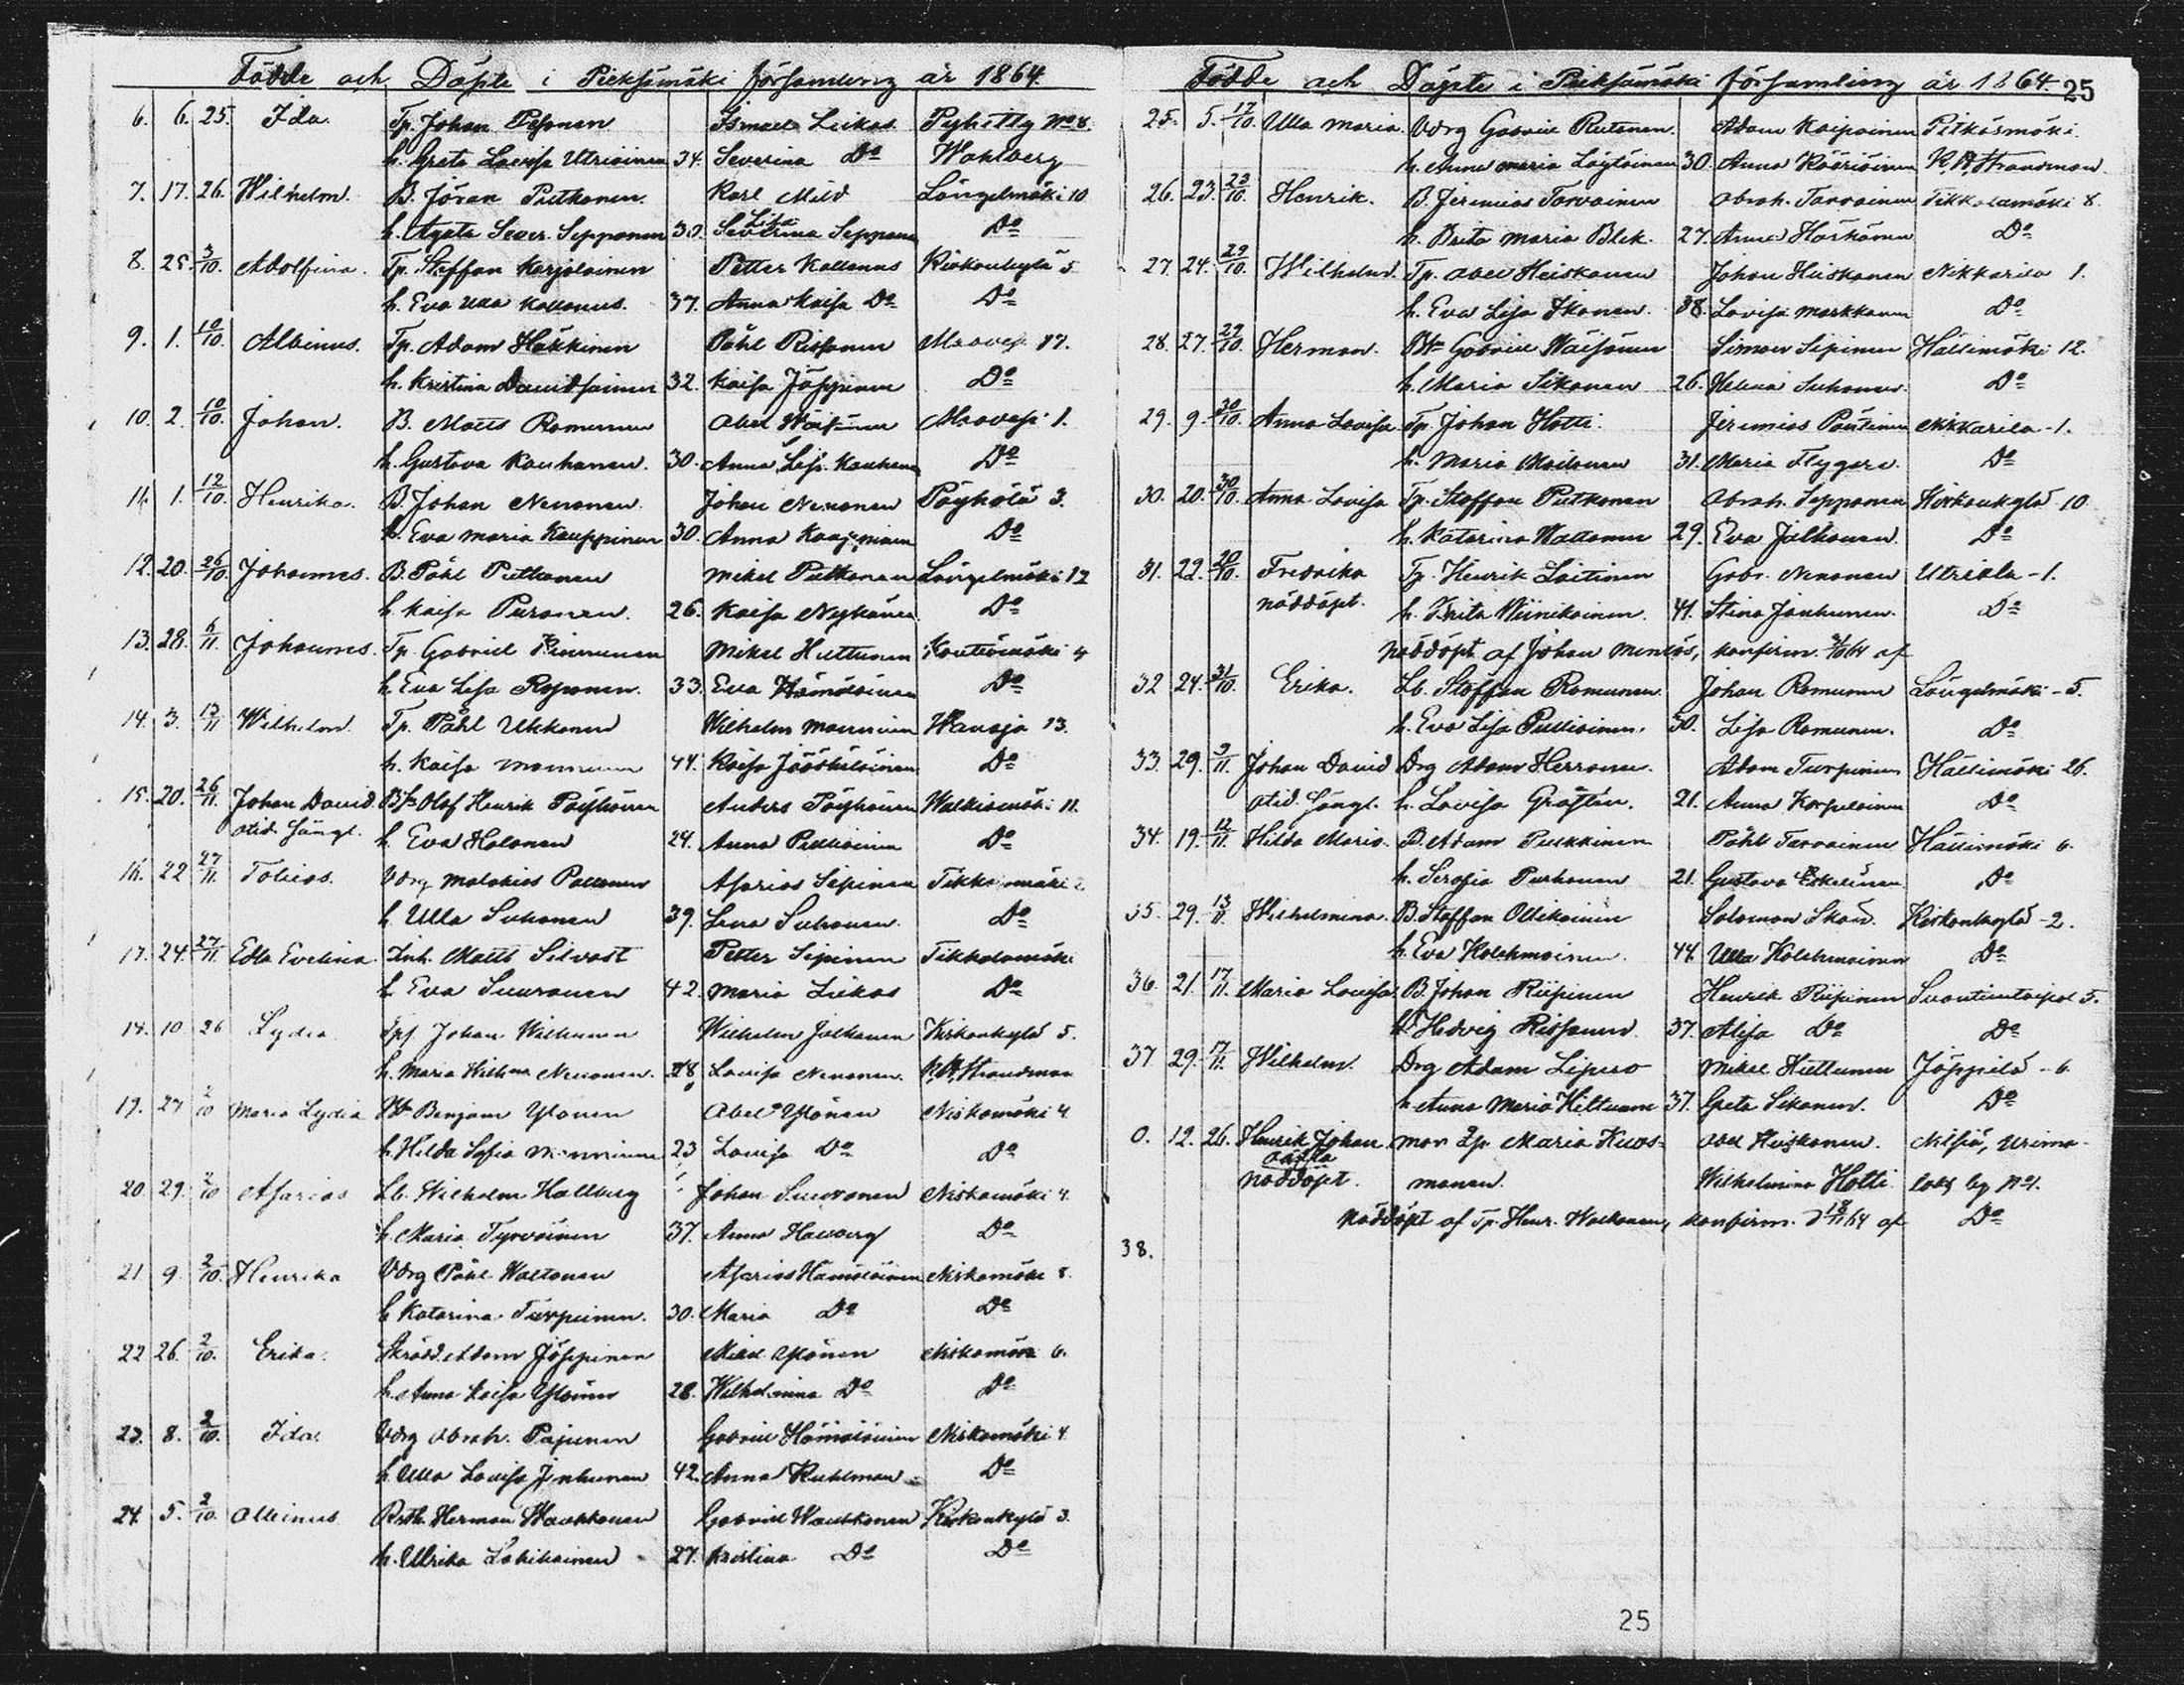 Födde och Döpte i Pieksämäki församling år 1864.
6. 6. 25. Ida. Tp. Johan Pesonen Ismael Liikas Pyhitty No 8.
h. Greta Lovisa Utriainen 34. Severina Do Wahlberg
7. 17. 26. Wilhelm. B. Jöran Putkonen. Karl Mild Längelmäki 10
h. Agata Sever. Sepponen 30. Lisa Severina Seppone Do
8. 25. 3/10. Adolfina. Tp. Staffan Karjalainen Petter Kollanus Kirkonkylä 5
h. Eva Ulla Kollanus. 37. Anna Kaisa Do Do
9. 1. 10/10. Albinus. Tp. Adam Häkkinen Påhl Rissanen Maavesi 17.
h. Kristina Davidsainen 32. Kaisa Jäppinen Do
10. 2. 10/10. Johan. B. Matts Romunen Abel Maavesi 1.
h. Gustava Kauhanen. 30. Anna Lis. Kauhane Do
11. 1. 12/10. Henrika. B. Johan Nenonen. Johan Nenonen Pöyhölä 3.
h. Eva Maria Kauppinen 30. Anna Do
12. 20. 26/10. Johannes. B. Påhl Putkonen Mikel Putkonen Längelmäki 12
h. Kaisa Puronen. 26. Kaisa Nykänen Do
13. 28. 6/11. Johannes. Tp. Gabriel Mikel Huttunen Kontiomäki 4
h. Eva Lisa Roponen. 33. Eva Hämäläinen Do
14. 3. 13/11 Wilhelm. Tp. Påhl Ukkonen Wilhelm Manninen Wanaja 13.
h. Kaisa Manninen 44. Kaisa Jääskeläinen Do
15. 20. 26/11. Johan David. Olof Henrik Pöyhönen Anders Pöyhönen Walkiamäki 11.
h. Eva Halonen 24. Anna Pulliainen Do
16. 22 27/11. Tobias. Vdrg Malakias Pallonen Asarias Sipinen Tikkalamäki 2.
h. Ulla Suhonen 39. Lena Suhonen. Do
17. 24. 27/11. Edla Evelina. Inh. Matts Silvast Petter Sipinen Tikkalamäki
h. Eva Suuronen 42. Maria Liikas Do
18. 10 26 Lydia Johan Wilhunen Wilhelm Jalkanen Kirkonkylä 5.
h. Maria Nenonen. 28 Lovisa Nenonen. Strandman
19. 27 2/10 Maria Lydia Benjam Ylönen Abel Ylönen Niskamäki 4
h. Hilda Sofia Manninen 23 Lovisa Do Do
20 29. 2/10 Asarias Lb. Wilhelm Hallberg Johan Suuronen Niskamäki 4.
h. Maria Tyrväinen 37. Anna Hallberg Do
21 9. 2/10. Henrika Vdrg Påhl Waltonen Asarias Hämäläinen Niskamäki 8.
h. Katarina Turpeinen. 30. Maria Do Do
22 26. 2/10. Erika. Skrädd. Adam Jäppinen Mikel Ylönen Niskamäki 6.
h. Anna Kaisa Ylönen 28. Wilhelmina Do Do
23. 8. 2/10. Ida. Vdrg Abrah. Papunen Gabriel Hämäläinen Niskamäki 4
h. Ulla Lovisa Janhunen 42. Anna Kuhlman Do
24. 5. 2/10. Albinus Herman Waukkonen Gabriel Waukkonen Kirkonkylä 3.
h. Ulrika Lahikainen 27. Kristina Do Do
Födde och Döpte i Pieksämäki församling år 1864. 25
25. 5. 17/10. Ulla Maria. Vdrg Gabriel Rutanen. Adam Kaipainen Pitkäsmäki.
h. Anna Maria Löytöinen 30. Anna Kääriäinen Strandman.
26. 23. 23/10. Henrik. B. Jeremias Tarvainen Abrah. Tarvainen Tikkalamäki 8.
h. Brita Maria Blek. 27. Anna Härkönen Do
27. 24. 29/10. Wilhelm. Tp. Abel Heiskanen Johan Heiskanen Nikkarila 1.
h. Eva Lisa Ikonen. 38. Lovisa Markkanen Do
28. 27. 29/10. Herman. Gabriel Väisänen Simon Sipinen Hällimäki 12.
h. Maria Sikanen 26. Helena Suhonen. Do
29. 9. 30/10. Anna Lovisa Tp. Johan Hotti. Jeremias Pöntinen Nikkarila - 1.
h. Maria Moilanen 31. Maria Flygare. Do
30. 20. 30/10. Anna Lovisa Tp. Staffan Putkonen Abrah. Sepponen Kirkonkylä 10.
h. Katarina Waltonen 29. Eva Jalkanen. Do
31. 22. 30/10. Fredrika Tp. Henrik Laitinen Gabr. Nenonen Utriala - 1.
nöddöpt. h. Brita Wiinikainen. 41. Stina Janhunen. Do
Nöddöpt af Johan konfirm. af
32 24. 31/10. Erika. Lb. Staffan Romunen. Johan Romunen Längelmäki - 5.
h. Eva Lisa Pulliainen. 30. Lisa Romunen. Do
33. 29. 9/11. Johan David Drg Adam Herranen. Adam Turpeinen Hällimäki 26.
h. Lovisa Gröhn. 21. Anna Korpelainen Do
34. 19. 12/11. Hilda Maria. B. Adam Pulkkinen Påhl Tarvainen Hällimäki 6.
h. Serafia Purhonen 21. Gustava Eskelinen Do
35. 29. 13/11. Wilhelmina. B. Staffan Ollikainen Salomon Skön. Kirkonkylä - 2.
h. Eva Kolehmainen. 44. Ulla Kolehmainen Do
36. 21. 17/11. Maria Lovisa B. Johan Riipinen Henrik Riipinen Suontientaipal 5.
h. Hedvig Rissanen. 37. Alisa Do Do
37 29. 17/11. Wilhelm. Drg Adam Lipero Mikel Huttunen Jäppilä - 6.
h. Anna Maria Hiltunen 37. Greta Sikanen. Do
0. 12. 26. Henrik Johan mor Maria Kuos- Abel Heiskanen. Nilsiä,
oäkta
nöddöpt. manen. Wilhelmina Hotti.
Nöddöpt af Tp. Henr. Walkonen, konfirm. af Do
38.
25